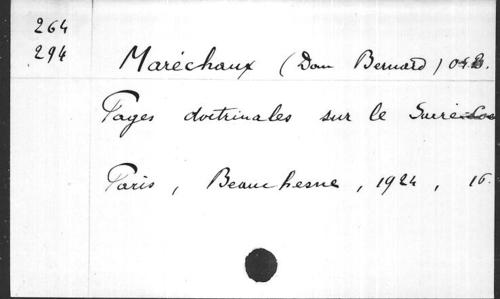 264
294
Maréchaux (Dom Bernard) O.S.B.
Pages doctrinales sur le
Paris, Beauchesne, 1924, 16